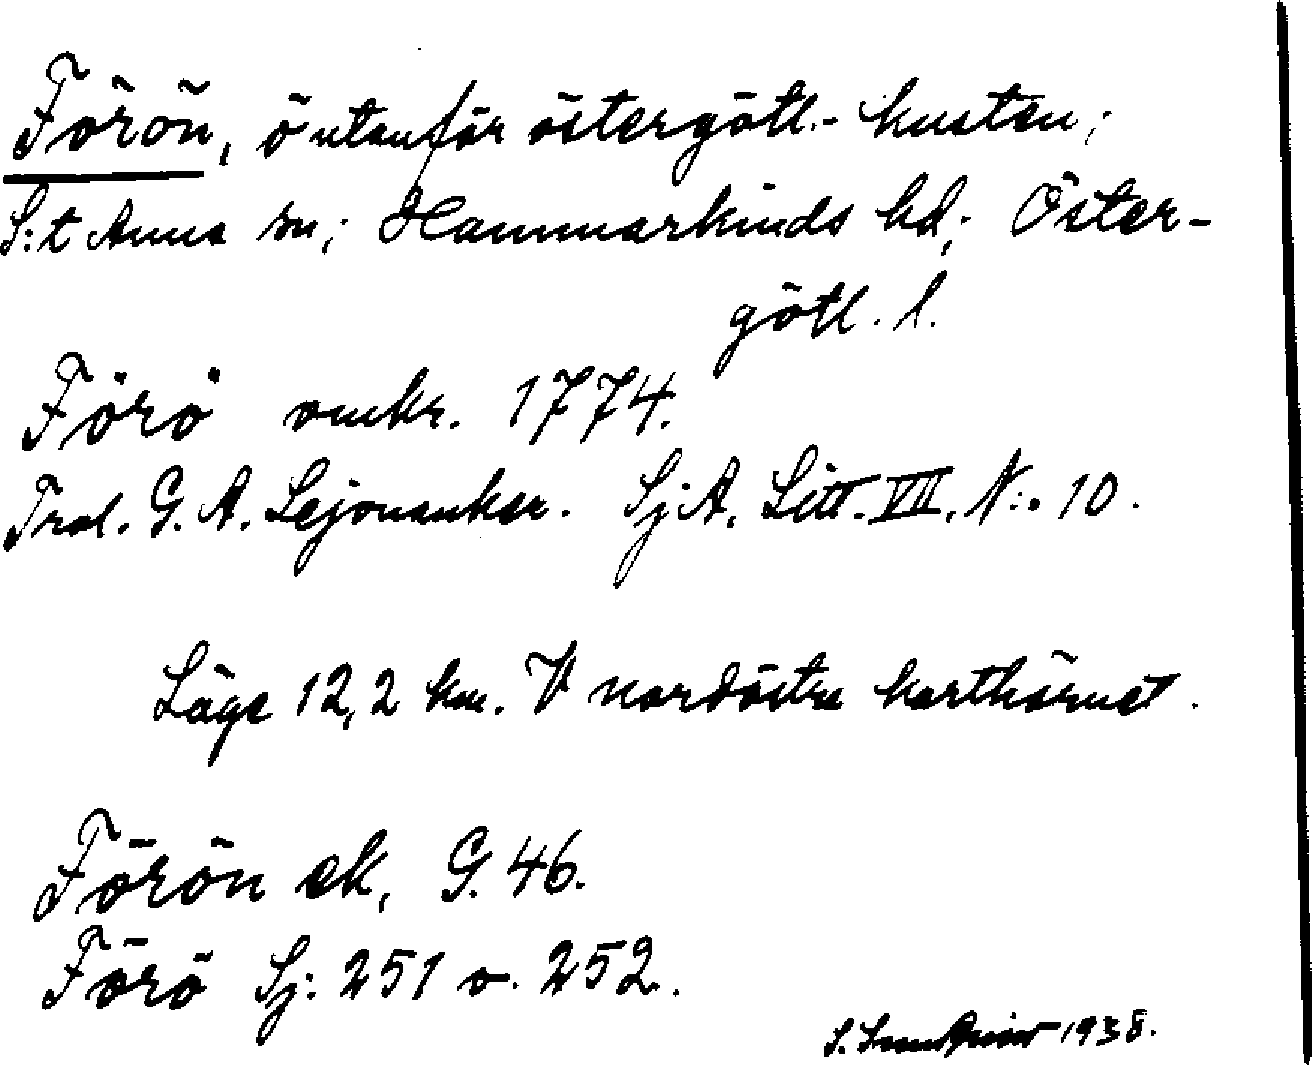 Förön, ö utanför östergötl.- kusten;
S:t Anna sn; Hammarkinds hd; Öster-
götl. l.
Förö omkr. 1774.
Trol. G. A. Lejonanker. SjA. Litt. VII. N:. 10.
Läge 12,2 km. V nordöstra karthörnet.
Förön ek, G. 46.
Förö Sj: 251 o. 252.
S. 1938.